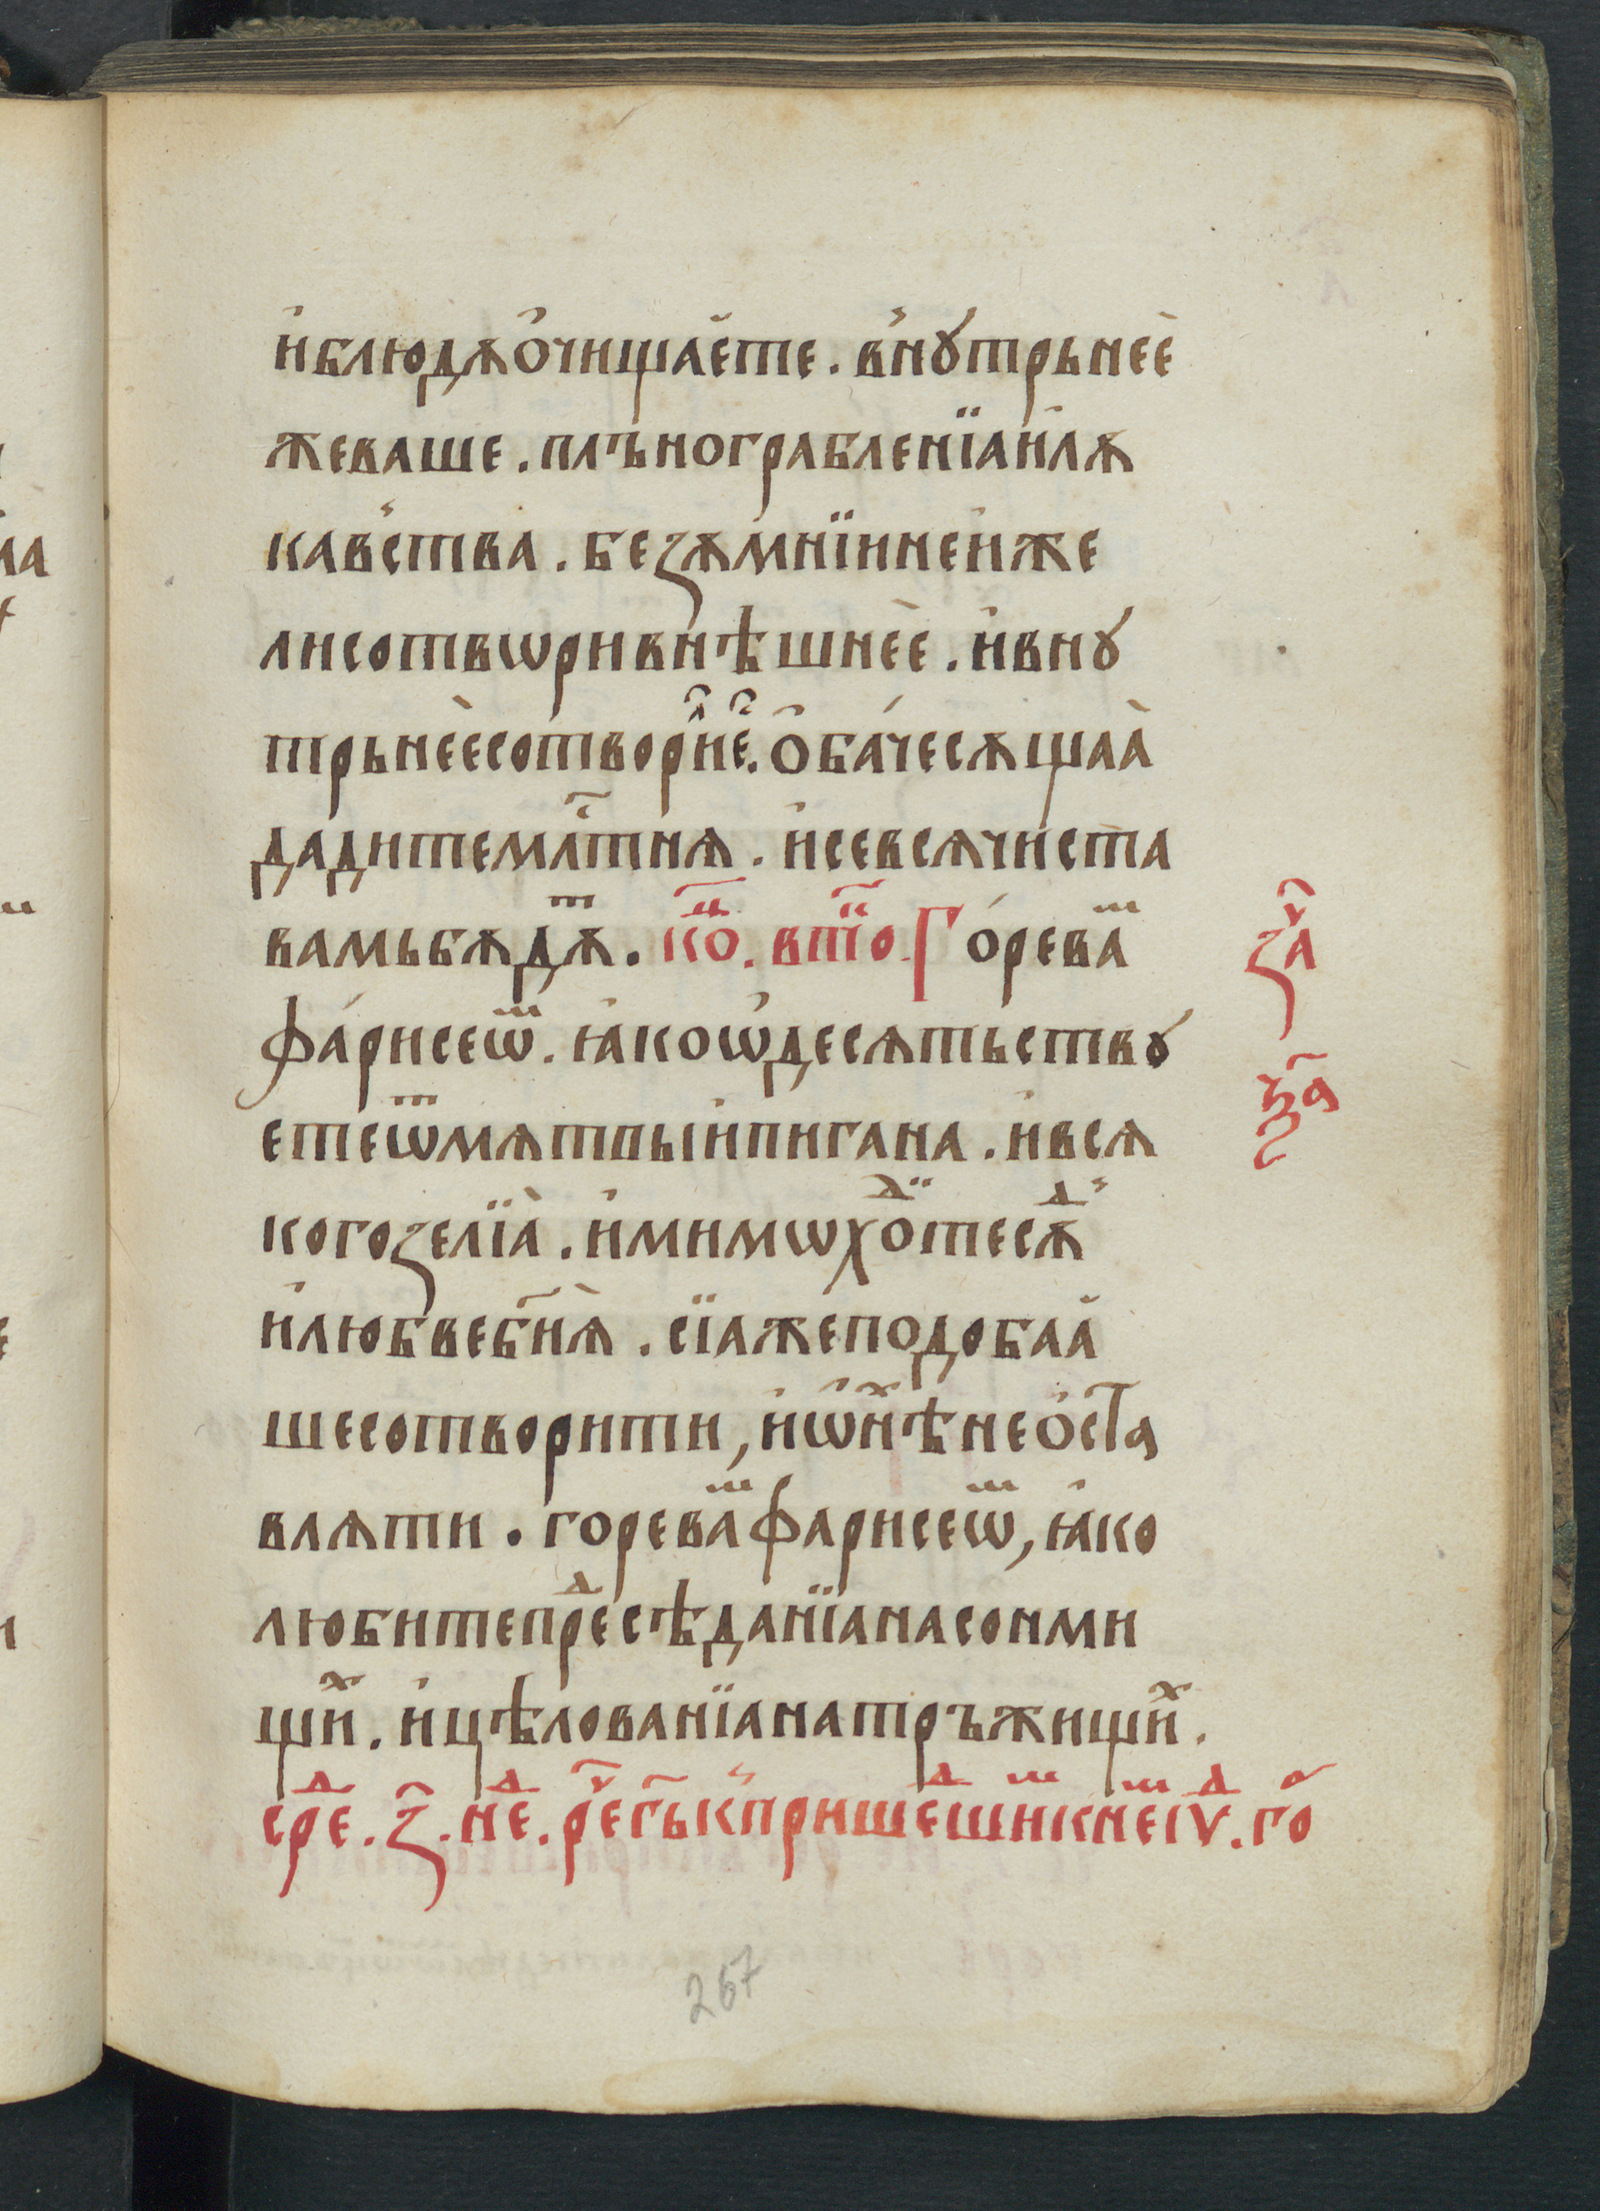 и҆блюдѫо҆чищае҆те. в҆нꙋтрьнее҆
жеваше. плъногработленїаи҆лѫ
кав҆ства. беꙁѫмнїиннеи҆же
лисотвѡривнѣшнее҆. и҆внꙋ
трьнее҆сотворилⷭ҇е. о҆бачесѫщаа҆
дадитемлⷭ҇тнѧ. и҆севсѧчиста
вамьбѫдѫⷮ. коⷰ҇. втоⷪ҇. Го҆реваⷨ
фарисеѡⷨ. ꙗ҆коѡ҆десѧтьствꙋ
етеѿмѧтпыи҆пигана. и҆всѧ
когоꙁелїа҆. и҆мимѡхоⷣтесѫⷣ
и҆любвебж҃їѧ. сїажеподобаа҆
шесотворити, и҆ѡ҆нѣⷯнео҆ста
влѧти. гореваⷨфарисеѡⷨ, ꙗ҆ко
любитепреⷣсѣданїанасонми
щиⷯ. и҆цѣлованїанатръжищиⷯ.
среⷣ. ꙁ. неⷣ. реч҃егь҃къ҆пришеⷣшиⷨкнемꙋⷤїꙋⷣ. го
ꙁаⷱ҇
ѯа҃
267